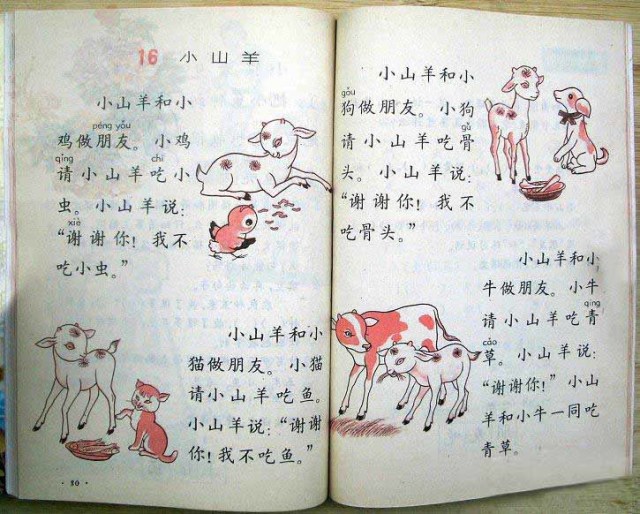 16 小山羊
小山羊和小
péng yǒu
鸡做朋友。小鸡
qǐng chī
请小山羊吃小
虫。小山羊说：
xiè
“谢谢你！我不
吃小虫。”
小山羊和小
猫做朋友。小猫
请小山羊吃鱼。
小山羊说：“谢谢
你！我不吃鱼。”
· 30 ·
小山羊和小
gǒu
狗做朋友。小狗
gǔ
请小山羊吃骨
头。小山羊说：
“谢谢你！我不
吃骨头。”
小山羊和小
牛做朋友。小牛
qīng
请小山羊吃青
cǎo
草。小山羊说：
“谢谢你！”小山
羊和小牛一同吃
青草。